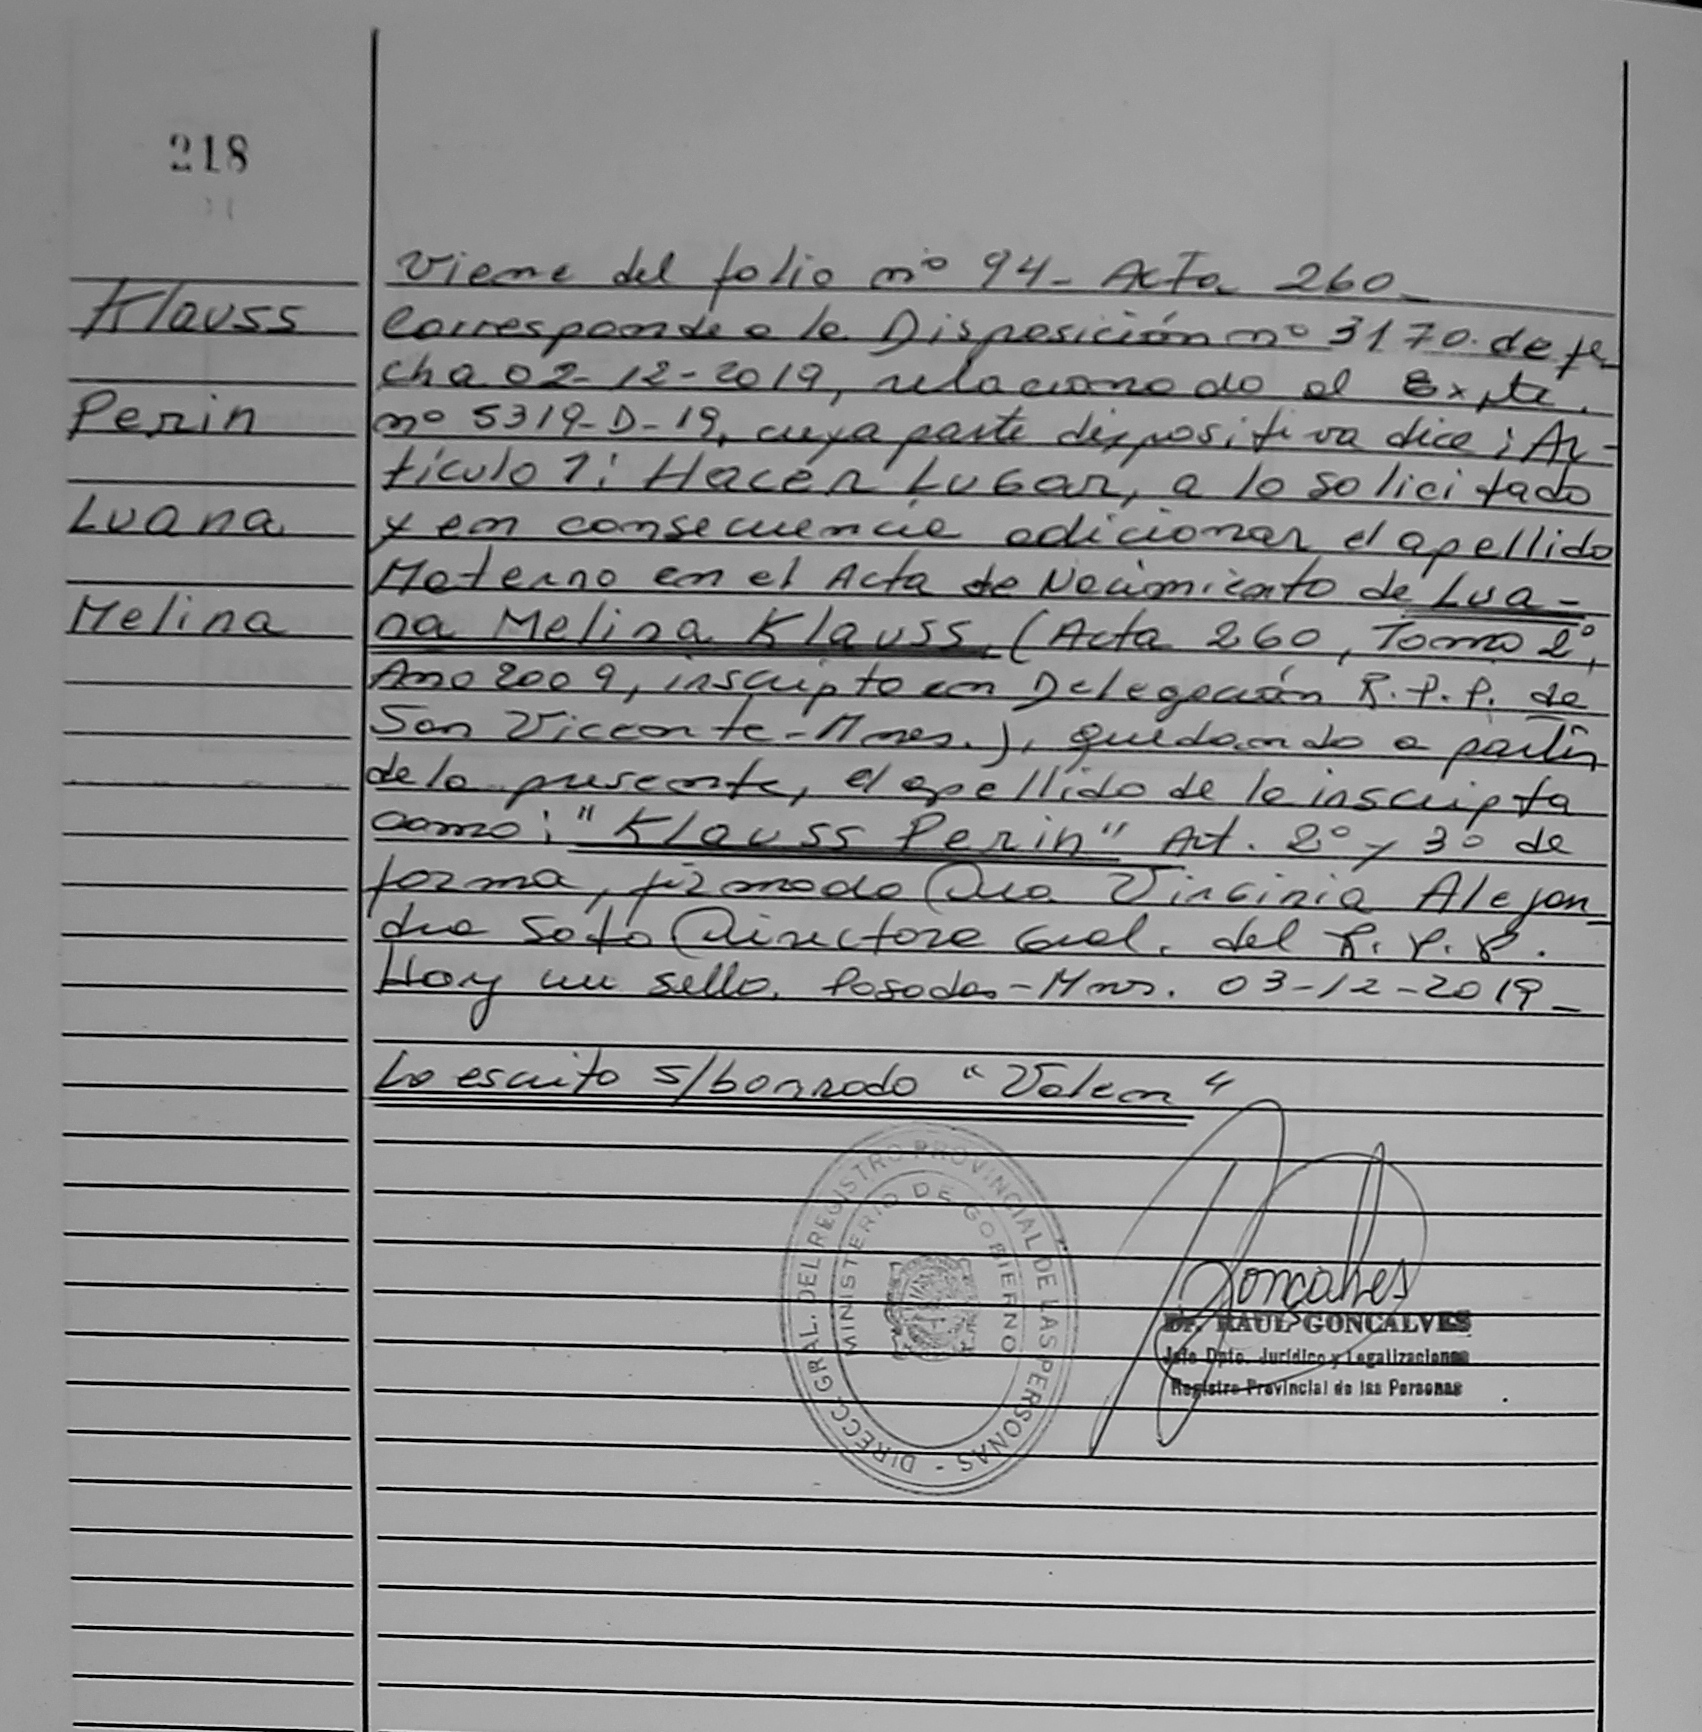 218
Klauss
Perin
Luana
Melina
Viene del folio nº 94- Acta 260-
Corresponde a la Disposición nº 3170. de fe-
cha 02-12-2019, relacionado al Expte.
nº 5319-D-19, cuya parte dispositiva dice: Ar-
tículo 1: Hacer Lugar, a lo solicitado
y en consecuencia adicionar el apellido
Materno en el Acta de Nacimiento de Lua-
na Melina Klauss, (Acta 260, Tomo 2º,
Año 2009, inscripto en Delegación R.P.P. de
San Vicente-Mnes.), quedando a partir
de la presente, el apellido de la inscripta
como: "Klauss Perin" Art. 2º y 3º de
forma, firmado Dra Virginia Alejan-
dra Soto Directora Gral. del R.P.P.
Hay un sello. Posadas-Mnes. 03-12-2019-
Lo escrito s/borrado "Valen"
DIRECC. GRAL. DEL REGISTRO PROVINCIAL DE LAS PERSONAS -
MINISTERIO DE GOBIERNO
Goncalves
Dr. RAUL GONCALVES
Jefe Dpto. Jurídico y Legalizaciones
Registro Provincial de las Personas